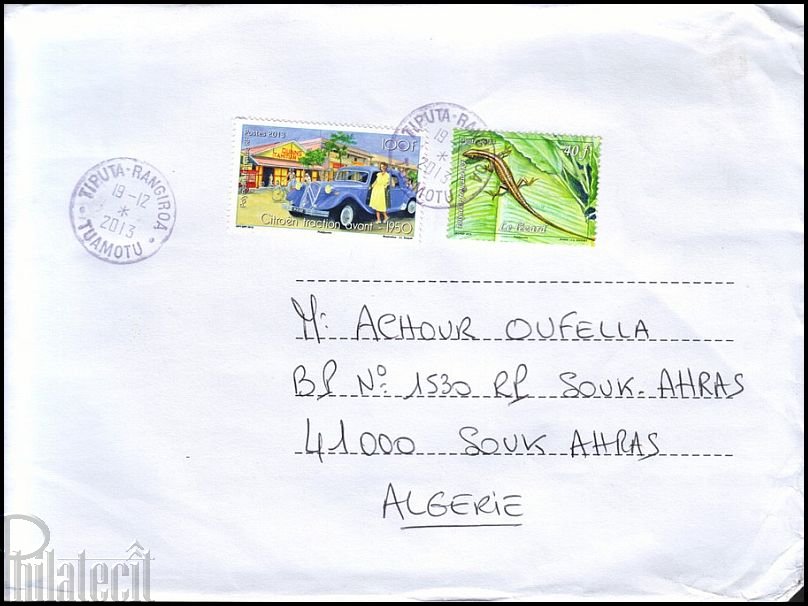 Postes 2013
100F
Citroën traction avant - 1950
TIPUTA-RA
19
*
2013
TUAMOTU
40 f
Le lézard
TIPUTA-RANGIROA
19-12
*
2013
TUAMOTU
Mr ACHOUR OUFELLA
BP N°: 1530 RP SOUK-AHRAS
41000 SOUK AHRAS
ALGERIE
Philatecit